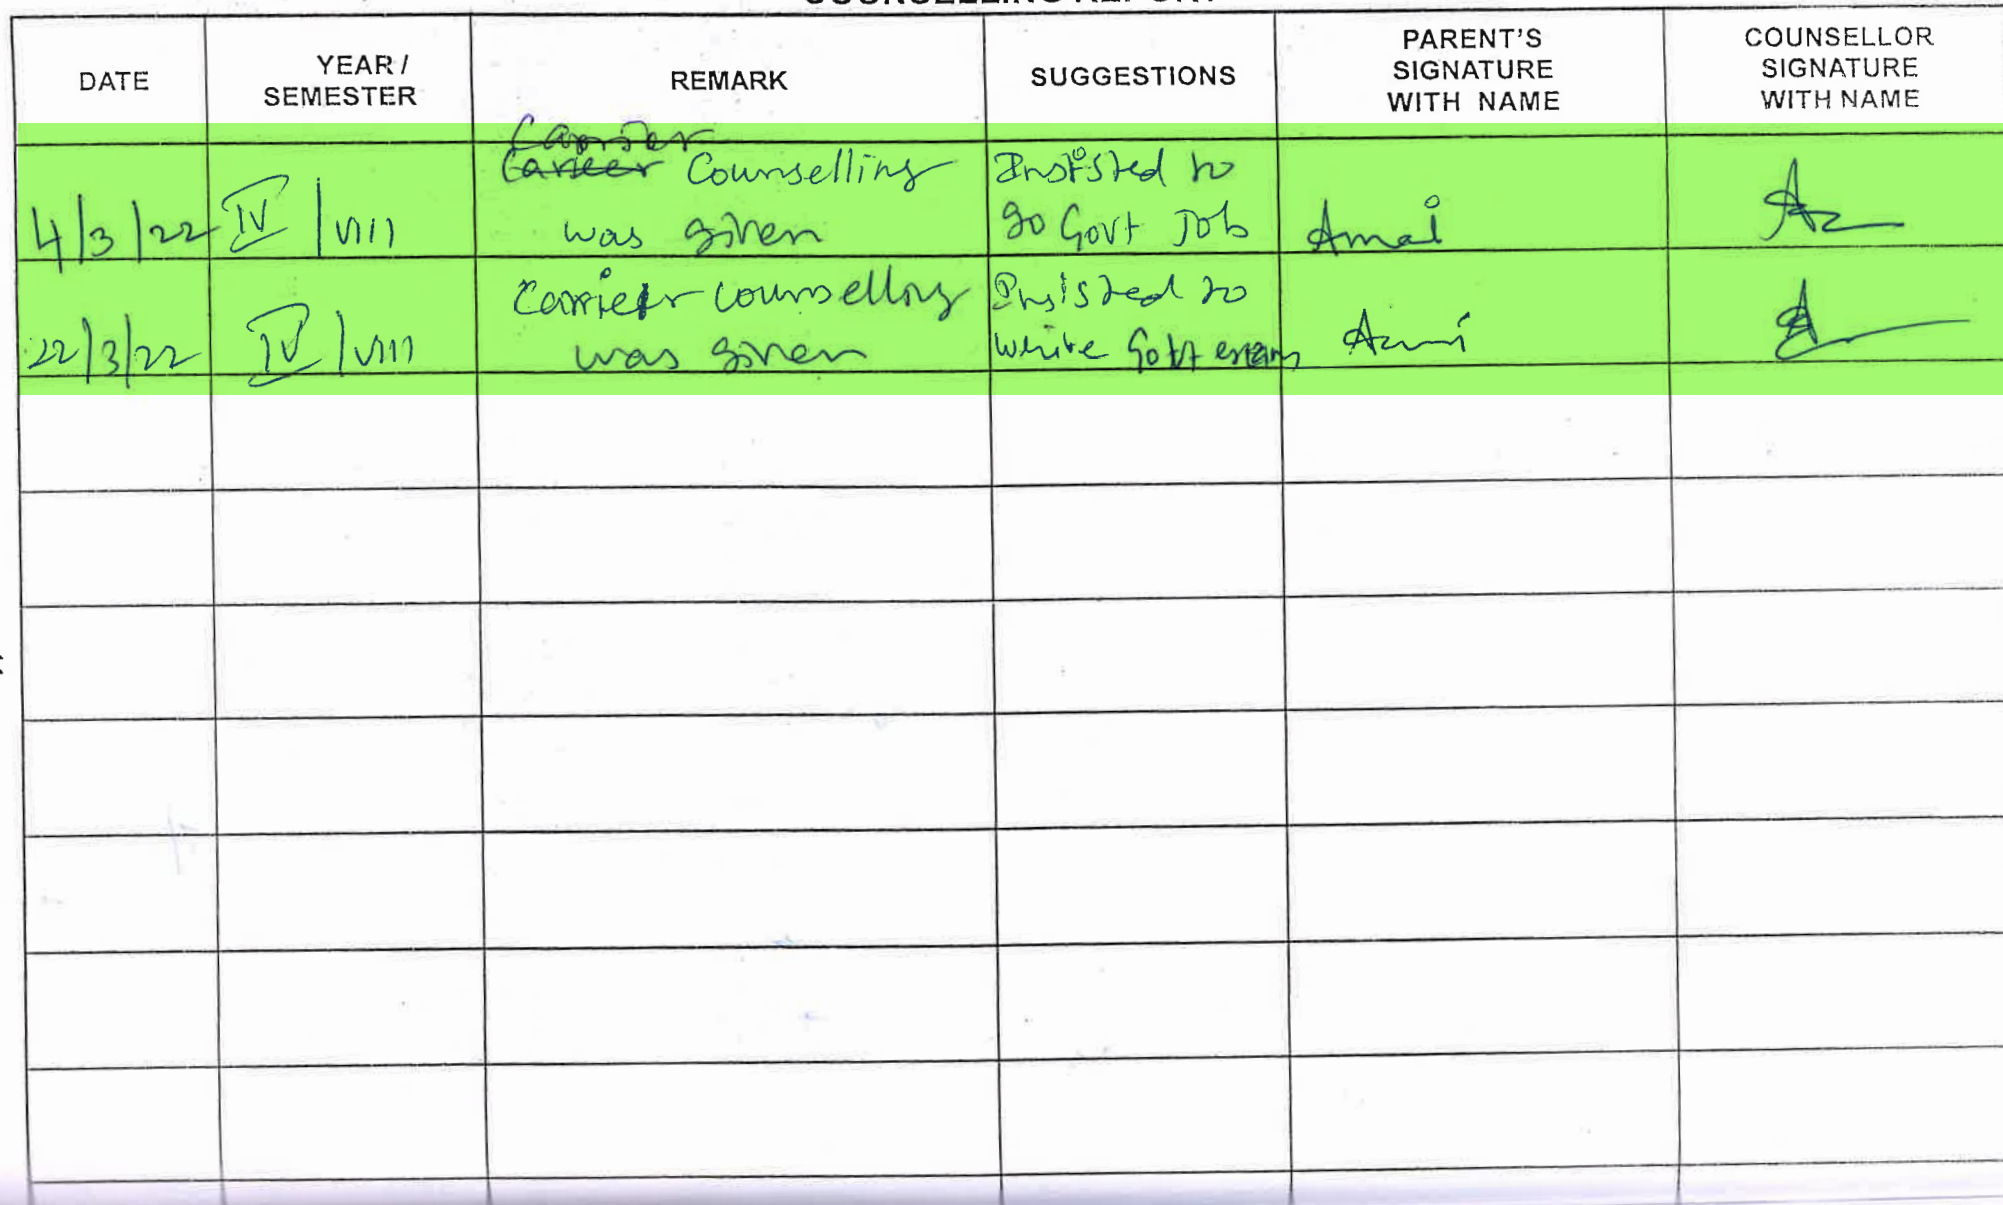 COUNSELLING REPORT
DATE
YEAR /
SEMESTER
REMARK
SUGGESTIONS
PARENT'S
SIGNATURE
WITH NAME
COUNSELLOR
SIGNATURE
WITH NAME
4/3/22
IV / VIII
Carrier
Career Counselling
was given
Insisted to
go Govt Job
Amal
22/3/22
IV / VIII
Carrier counselling
was given
Insisted to
write Govt exam